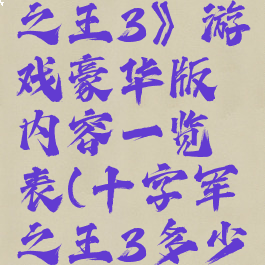 之王3》游
戏豪华版
内容一览
表(十字军
之王3多少